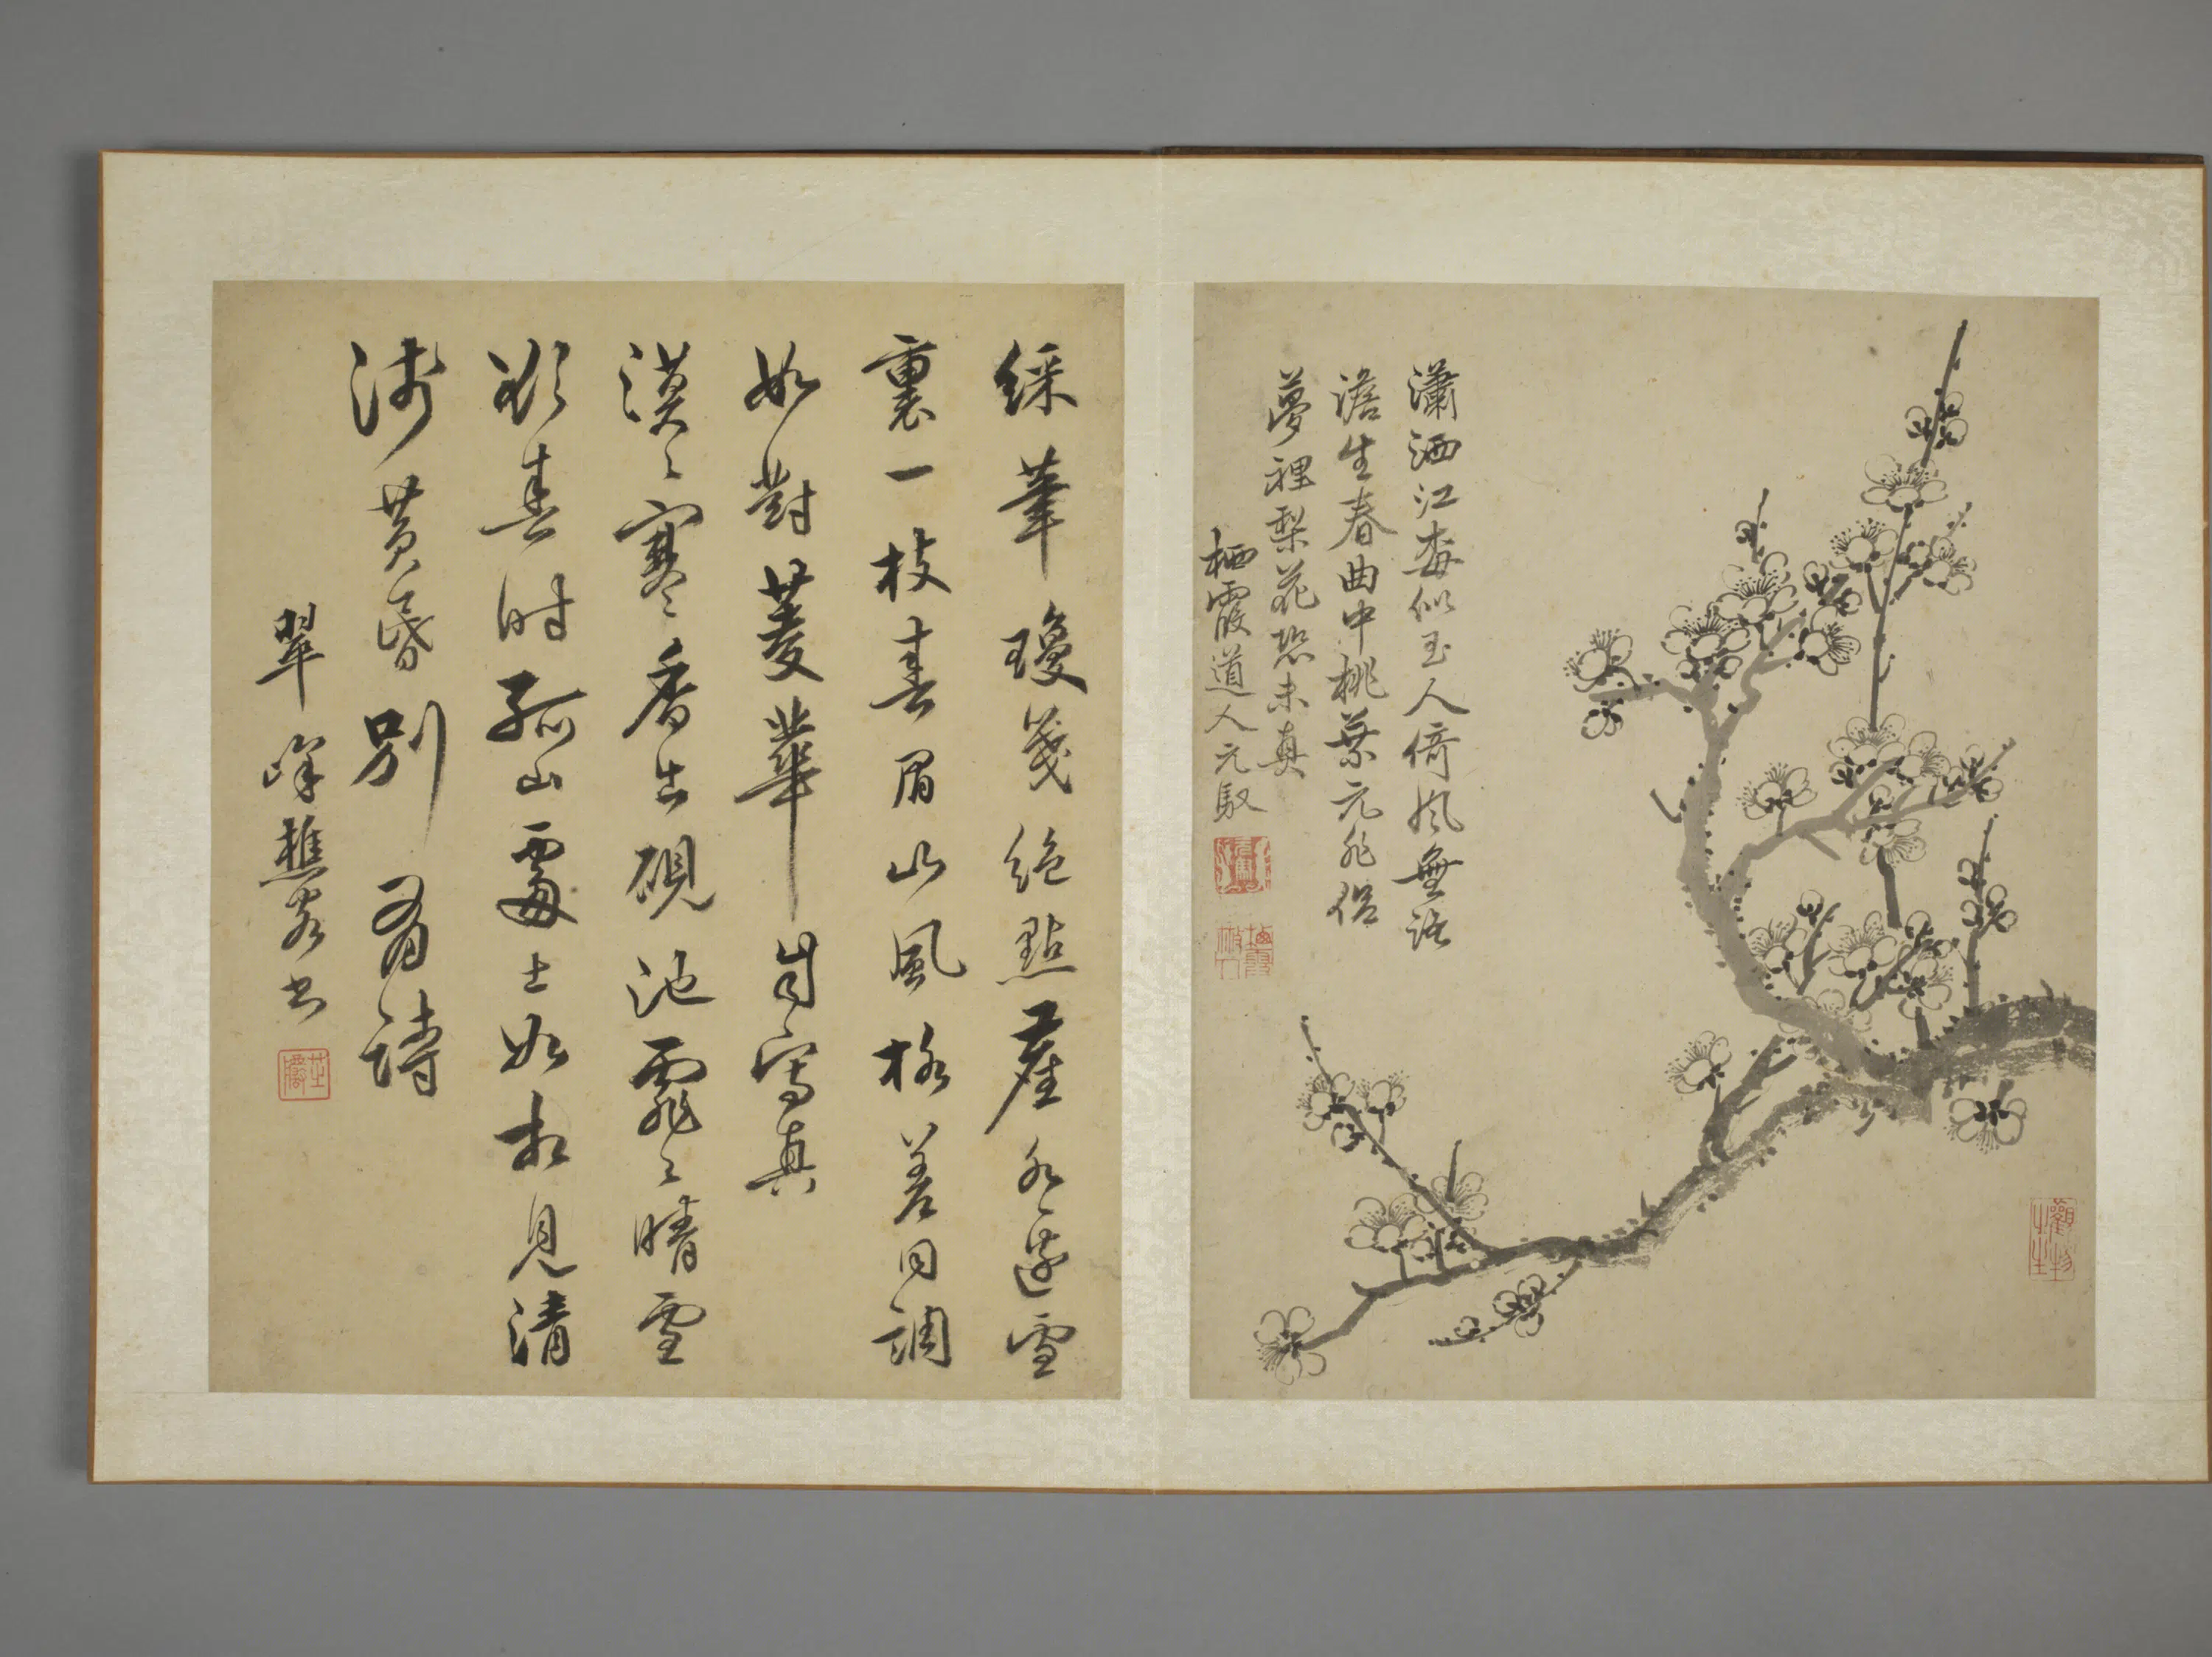 瀟洒江梅似玉人倚風無語
澹生春曲中桃葉元非俗
夢裡梨花恐未真
栖霞道人元馭
綵筆瓊箋絶點塵水邊雪
裏一枝春眉山風格差同調
如對菱華自寫真
漠〻寒香出硯池霏〻晴雪
欲春時孤山處士如相見清
淺黃昏別有詩
翠峰樵客書